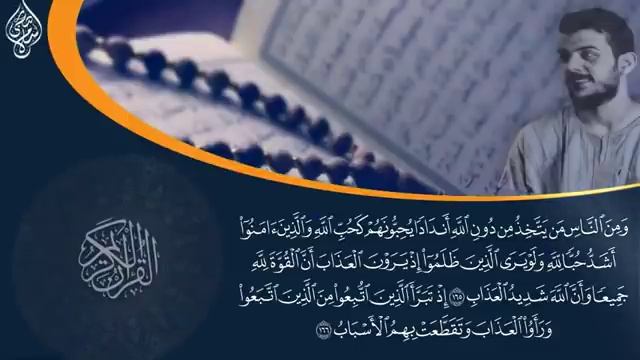 وَمِنَ ٱلنَّاسِ مَن يَتَّخِذُ مِن دُونِ ٱللَّهِ أَندَادًا يُحِبُّونَهُمْ كَحُبِّ ٱللَّهِ وَٱلَّذِينَ ءَامَنُوٓا۟
أَشَدُّ حُبًّا لِّلَّهِ وَلَوْ يَرَى ٱلَّذِينَ ظَلَمُوٓا۟ إِذْ يَرَوْنَ ٱلْعَذَابَ أَنَّ ٱلْقُوَّةَ لِلَّهِ
جَمِيعًا وَأَنَّ ٱللَّهَ شَدِيدُ ٱلْعَذَابِ ١٦٥ إِذْ تَبَرَّأَ ٱلَّذِينَ ٱتُّبِعُوا۟ مِنَ ٱلَّذِينَ ٱتَّبَعُوا۟
وَرَأَوُا۟ ٱلْعَذَابَ وَتَقَطَّعَتْ بِهِمُ ٱلْأَسْبَابُ ١٦٦
القرآن الكريم